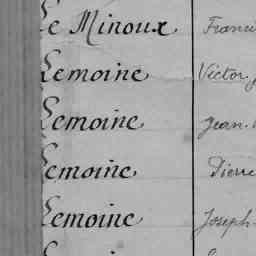 Le Minoux
Lemoine Victor
Lemoine Jean
Lemoine Pierre
Lemoine Joseph